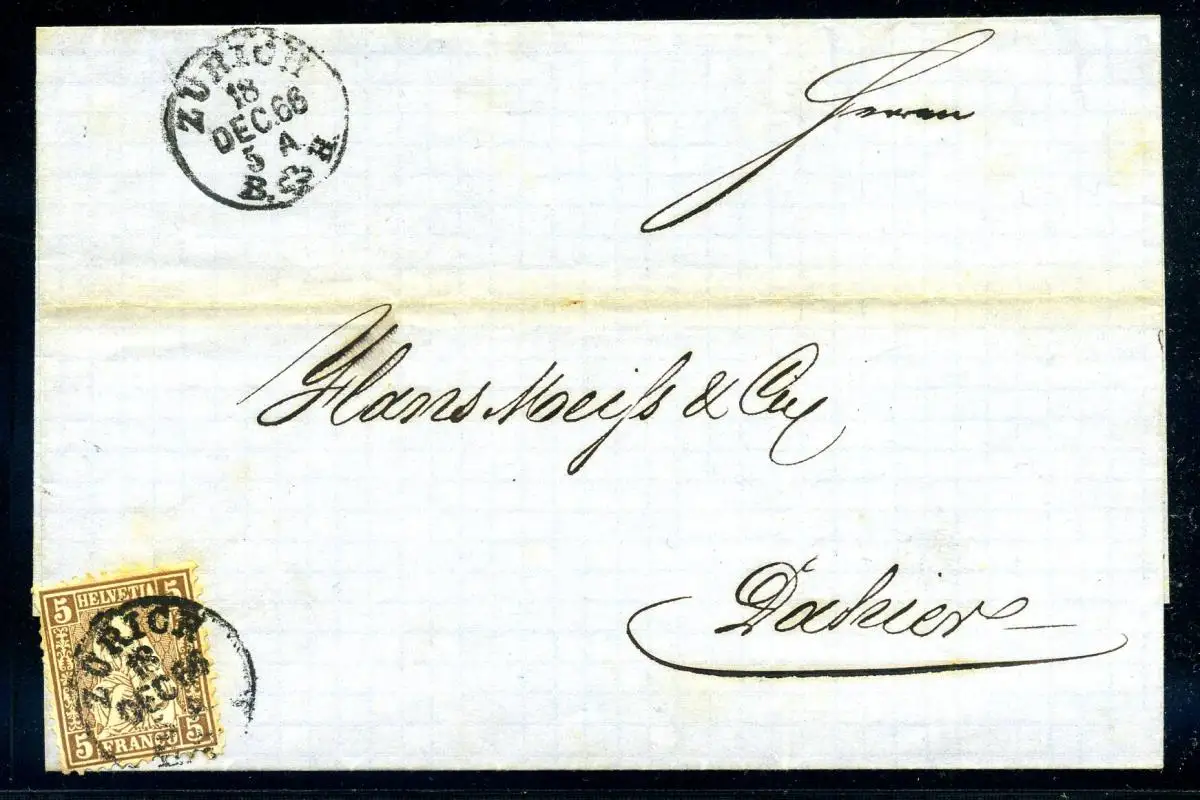 ZÜRICH
18
DEC.66
5 A
B. H.
Herrn
Hans Meiß & Cie
Dahier
5 HELVETIA 5
ZÜRICH
18
DEC 66
5 FRANCO 5